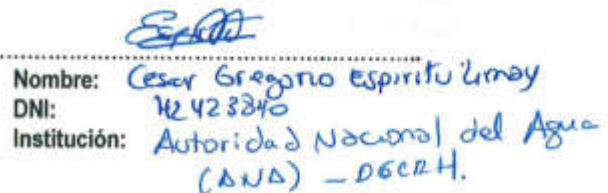 Nombre: Cesar Gregorio Espiritu Limay
DNI: 42423840
Institución: Autoridad Nacional del Agua
(ANA) - DGCRH.